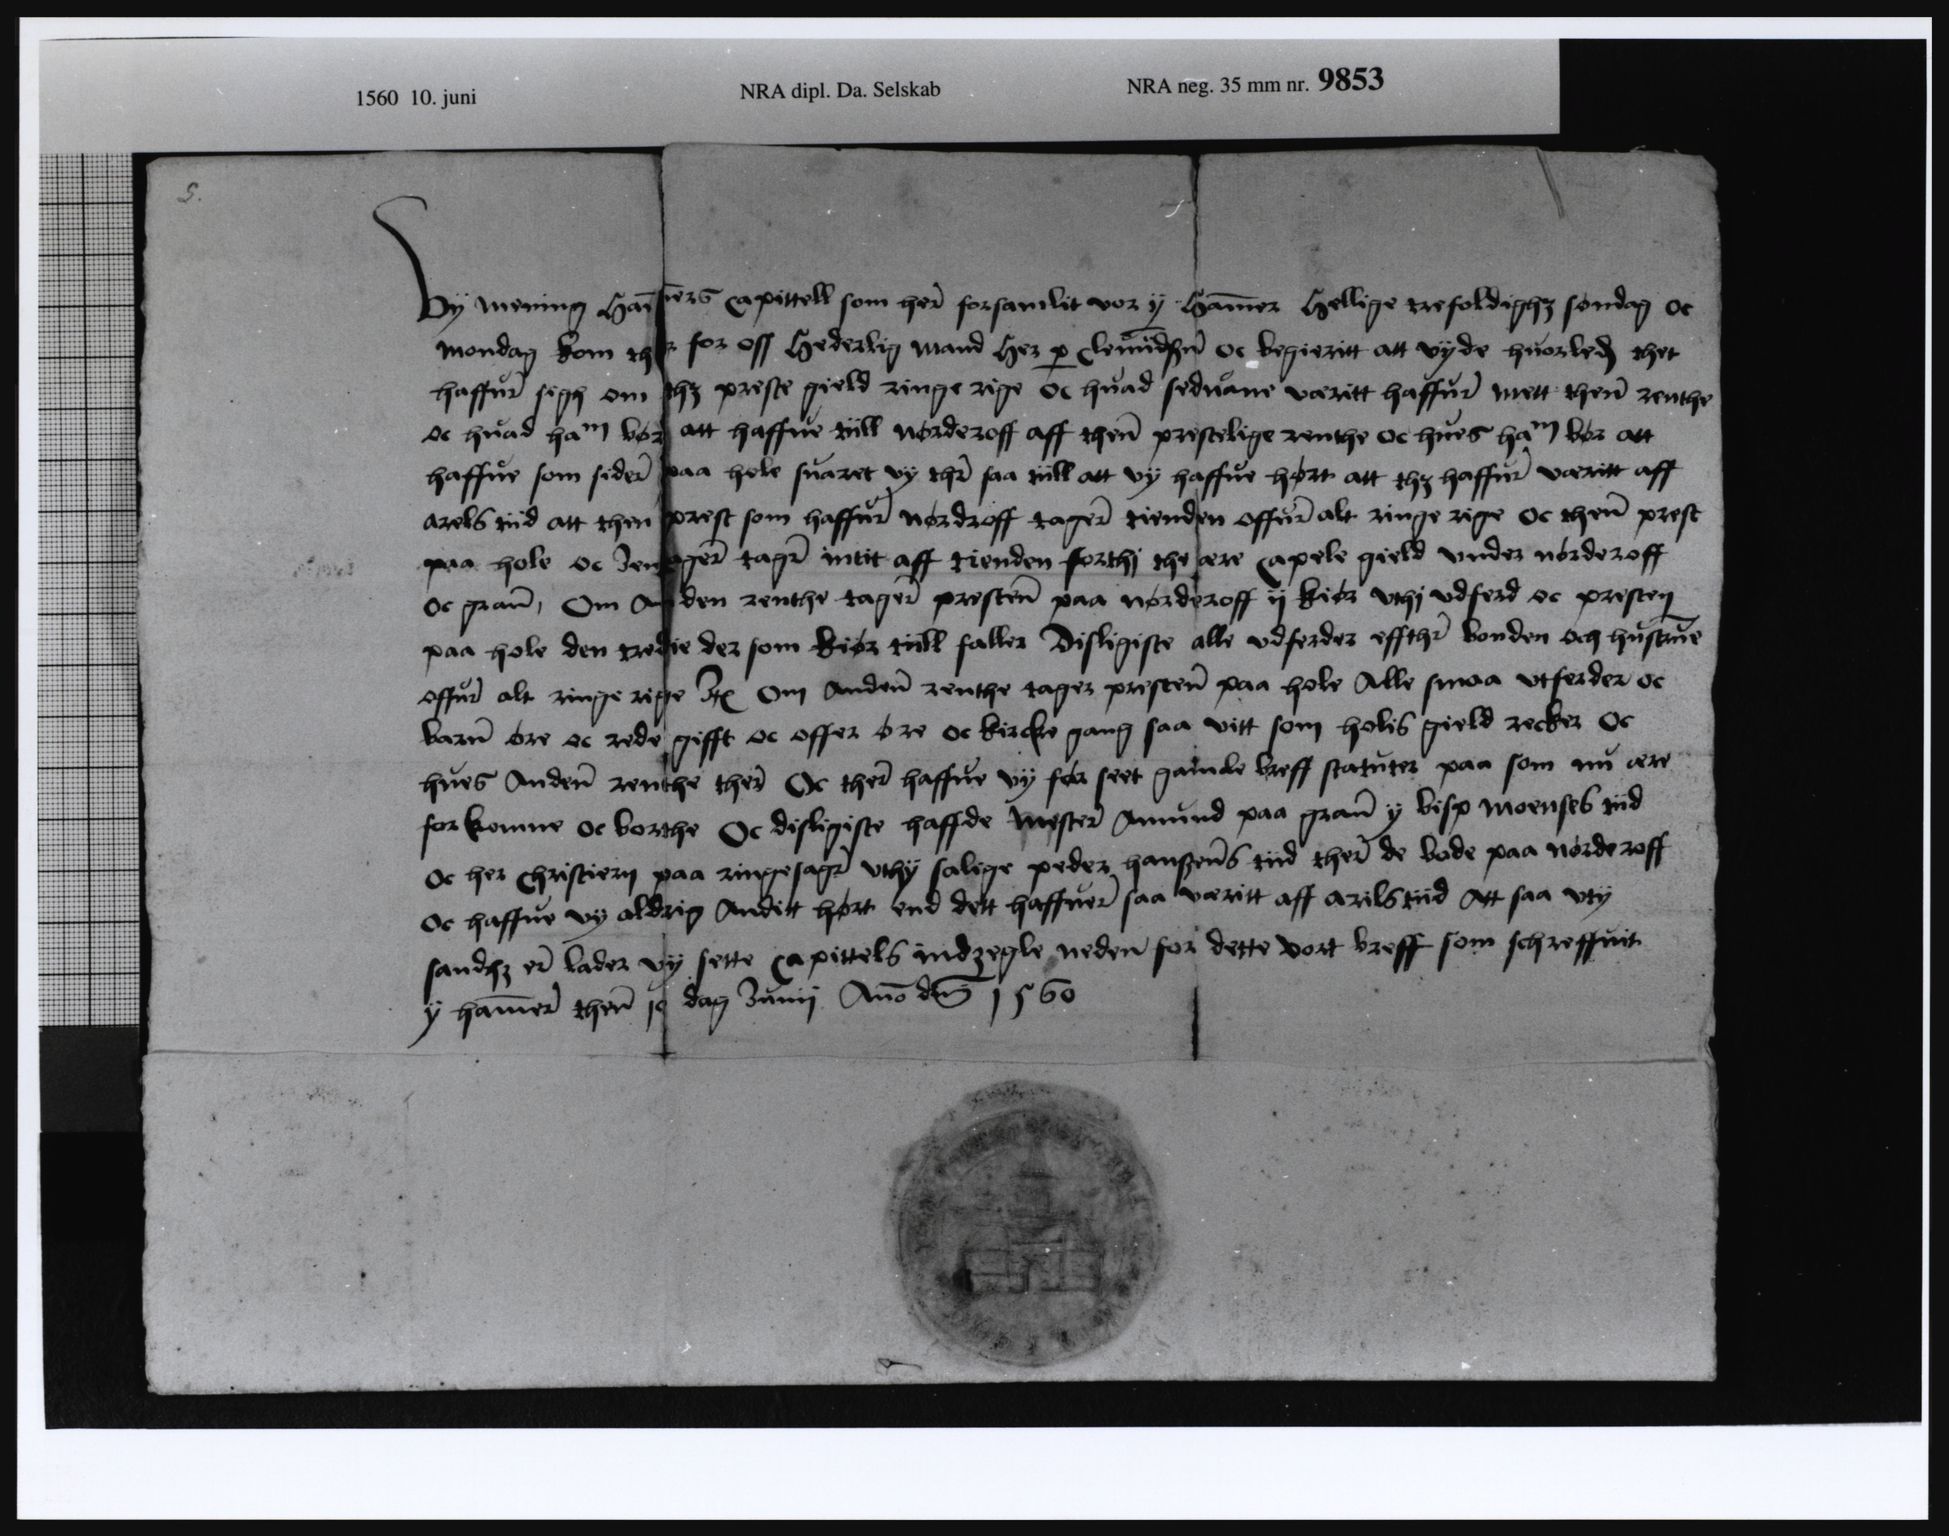 1560 10. juni NRA dipl. Da. Selskab NRA neg. 35 mm nr. 9853
5.
Vy mening Ham̄ers Capittell som her̄ forsamlit vor y Ham̄er Hellige trefoldighz søndag oc
mondag kom ther for oss Hederlig mand Her p Clemıdsṅ oc begieritt att vyde huorledz thet
haffur̄ sigh om thz preste gield ringe rige oc huad seduane væritt haffur̄ mett then̄ renthe
oc huad ham bør att haffue tiill nørderoff aff then̄ prestelige renthe oc hues ham bør att
haffue som sider̄ paa hole suaret vy thr̄ saa tiill att vy haffue hørt att thz haffur̄ væritt aff
arels tiid att then prest som haffur̄ nørdroff tager̄ tienden offur̄ alt ringe rige oc then̄ prest
paa hole oc Jenager̄ tagr̄ intit aff tienden forthj the ære Capele gield vnder nørderoff
oc gran̄, Om Anden renthe tager̄ presten̄ paa nørderoff ij kiør vthj vdferd oc presten
paa hole den tredie der som kiør tiill faller Disligiste alle vdferder effthr̄ bonden och hustrue
offur̄ alt ringe rige Itē Om Anden̄ renthe tager presten̄ paa hole Alle smaa vtferder oc
barn̄ øre oc rede gifft oc offer øre oc kircke gang saa vitt som holis gield recker Oc
hues Anden̄ renthe ther̄ Oc ther̄ haffue vy før seet gamle breff statuter paa som nu ære
forkomne oc borthe Oc disligiste haffde Mester̄ Amund paa gran̄ y bisp moenses tiid
Oc her Christiern paa ringesagr̄ vthy salige peder hanszen̄s tiid ther̄ de bode paa nørderoff
Oc haffue vy aldrig Anditt hørt end dett haffuer̄ saa væritt aff arils tiid Att saa vty
sandhz er̄ lader vy sette Capittels indzegle neden̄ for dette vort breff som schreffuit
y ham̄er̄ then̄ 10 dag Junij An̄o dn̄j 1560